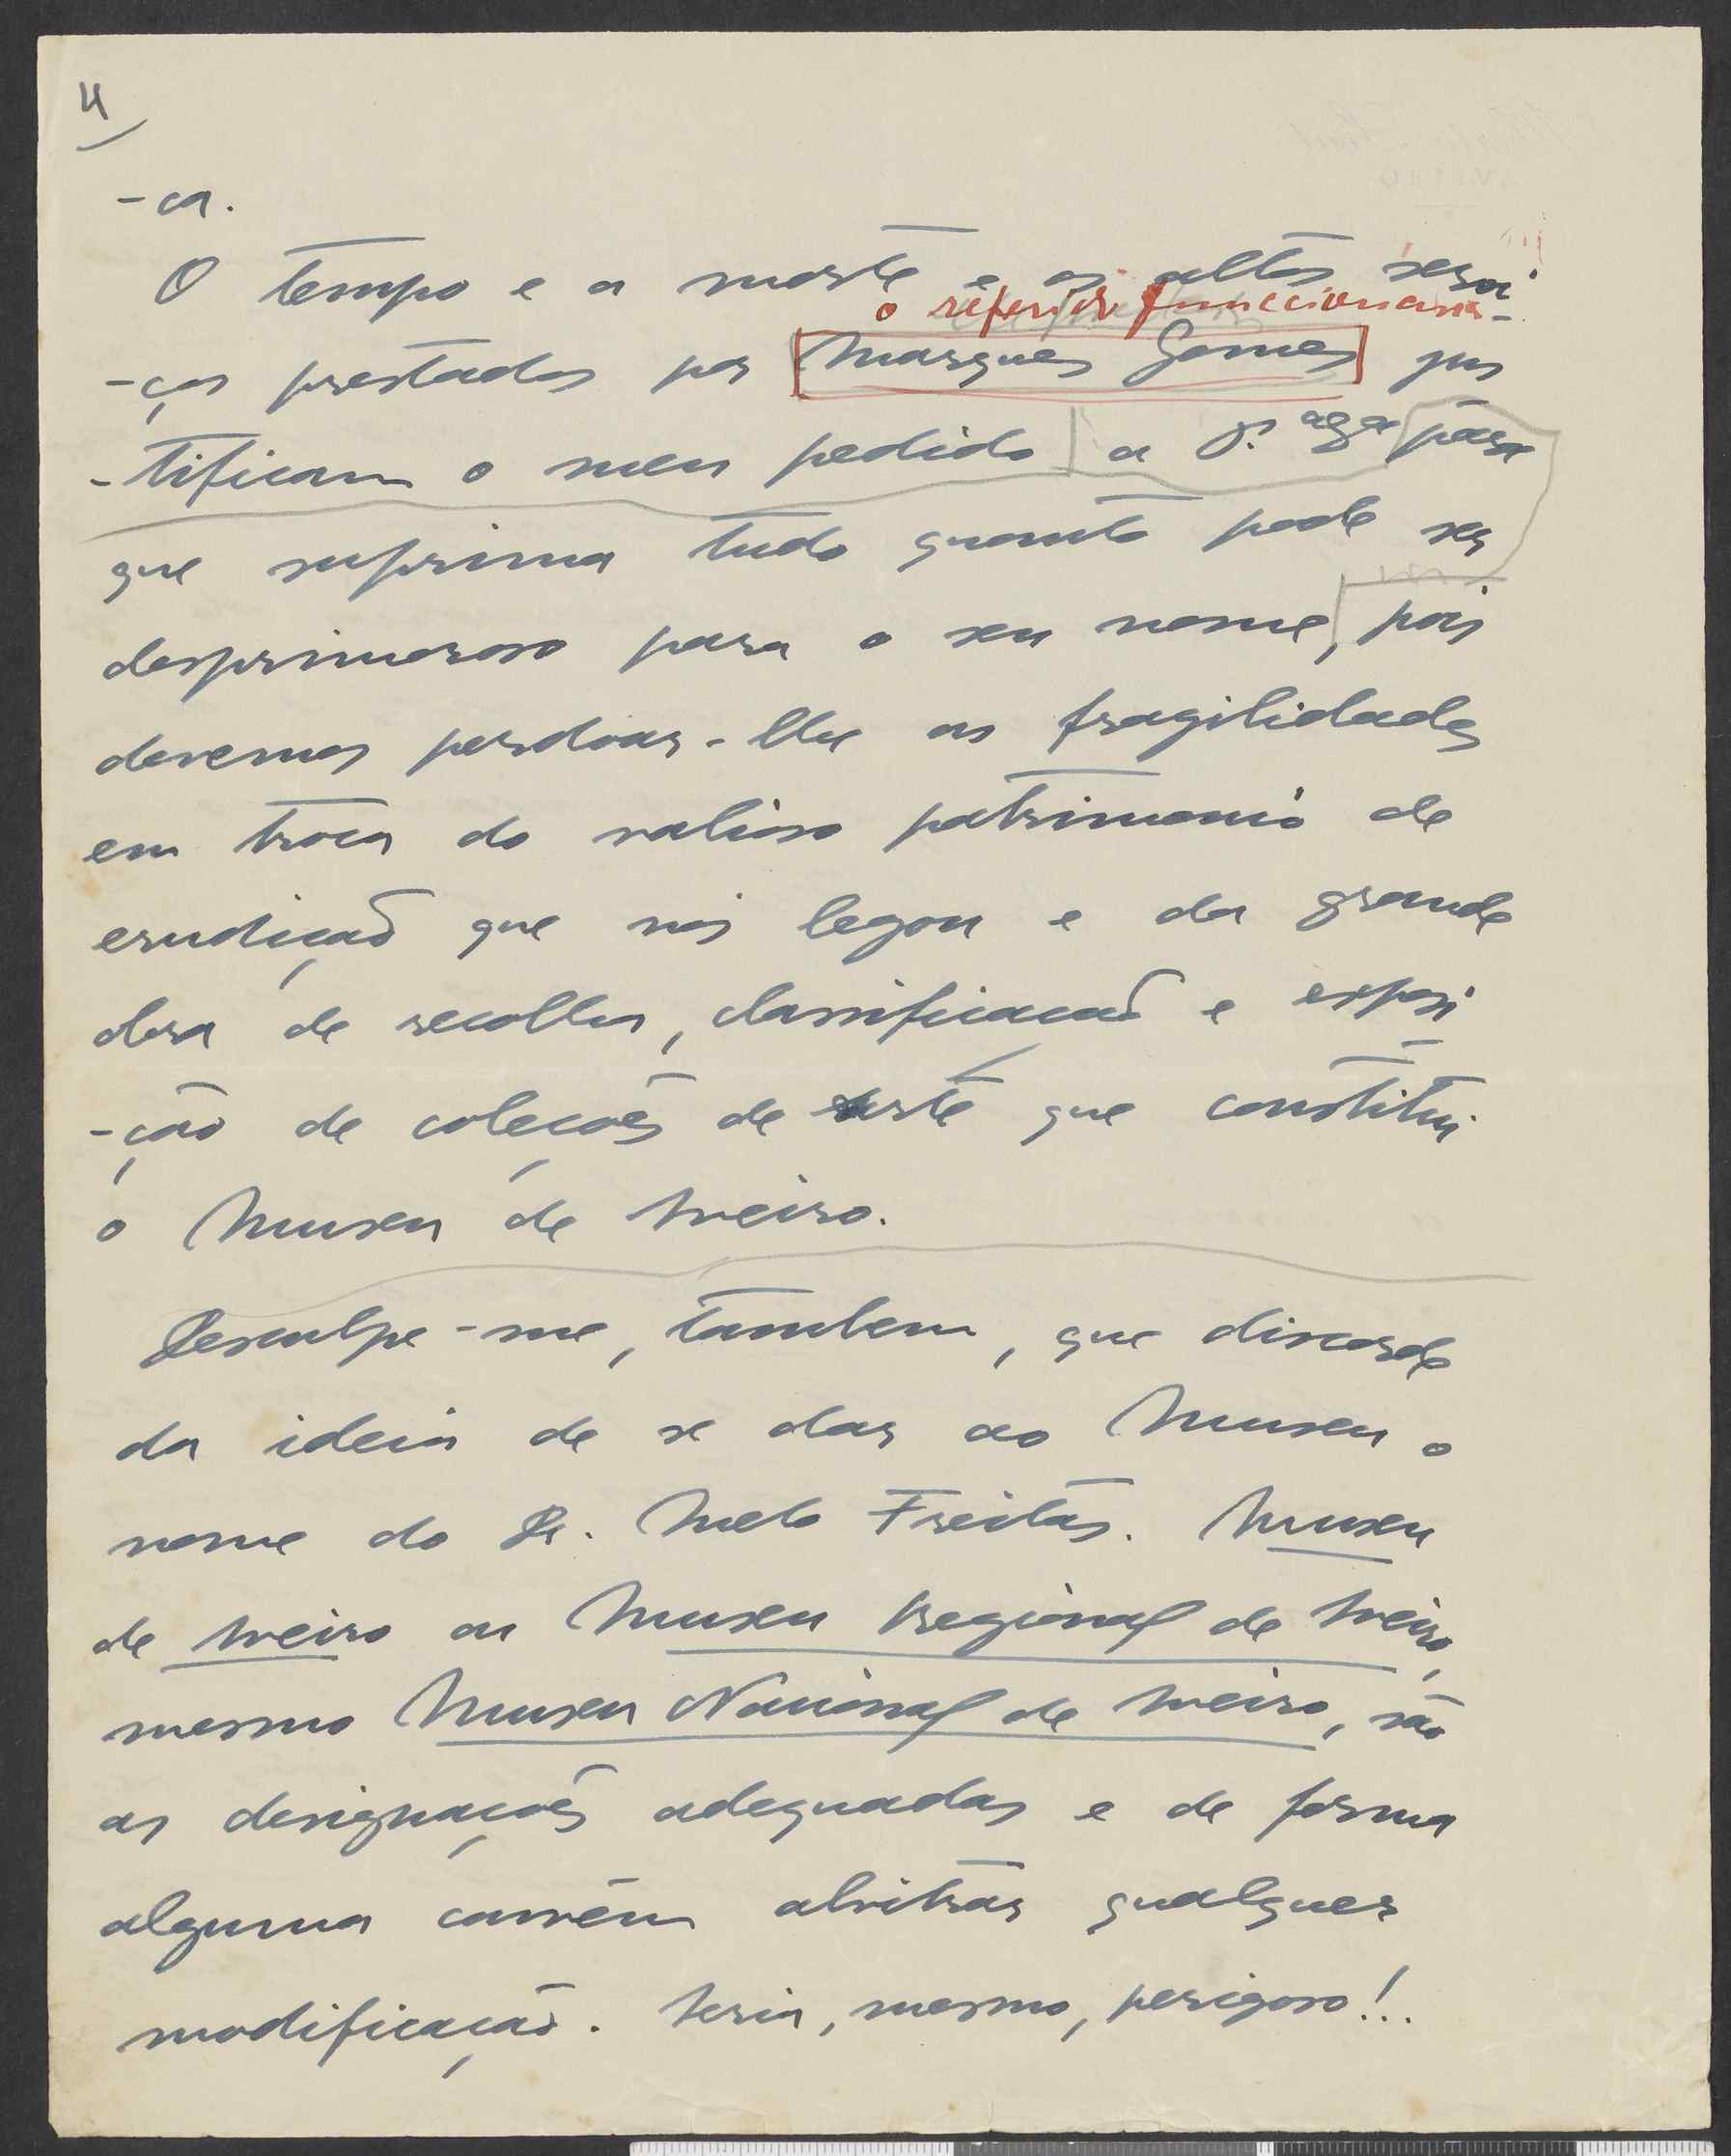 4
-ca.
O tempo e a morte e os altos servi-
o referido funccionario
-ços prestados por Marques Gomes jus
-tificam o meu pedido a V. para
que suprima tudo quanto pode ser
desprimoroso para o seu nome, pois
devemos perdoar-lhe as fragilidades
em troca do valioso patrimonio de
erudição que nos legou e da grande
obra de recolha, classificação e exposi
-ção de coleções de arte que constitui
o Museu de Aveiro.
Desculpe-me, tambem, que discorde
da ideia de se dar ao Museu o
nome do Dr. Melo Freitas. Museu
de Aveiro ou Museu Regional de Aveiro,
mesmo Museu Nacional de Aveiro, são
as designações adequadas e de forma
alguma convém alvitrar qualquer
modificação. Seria, mesmo, perigoso!..